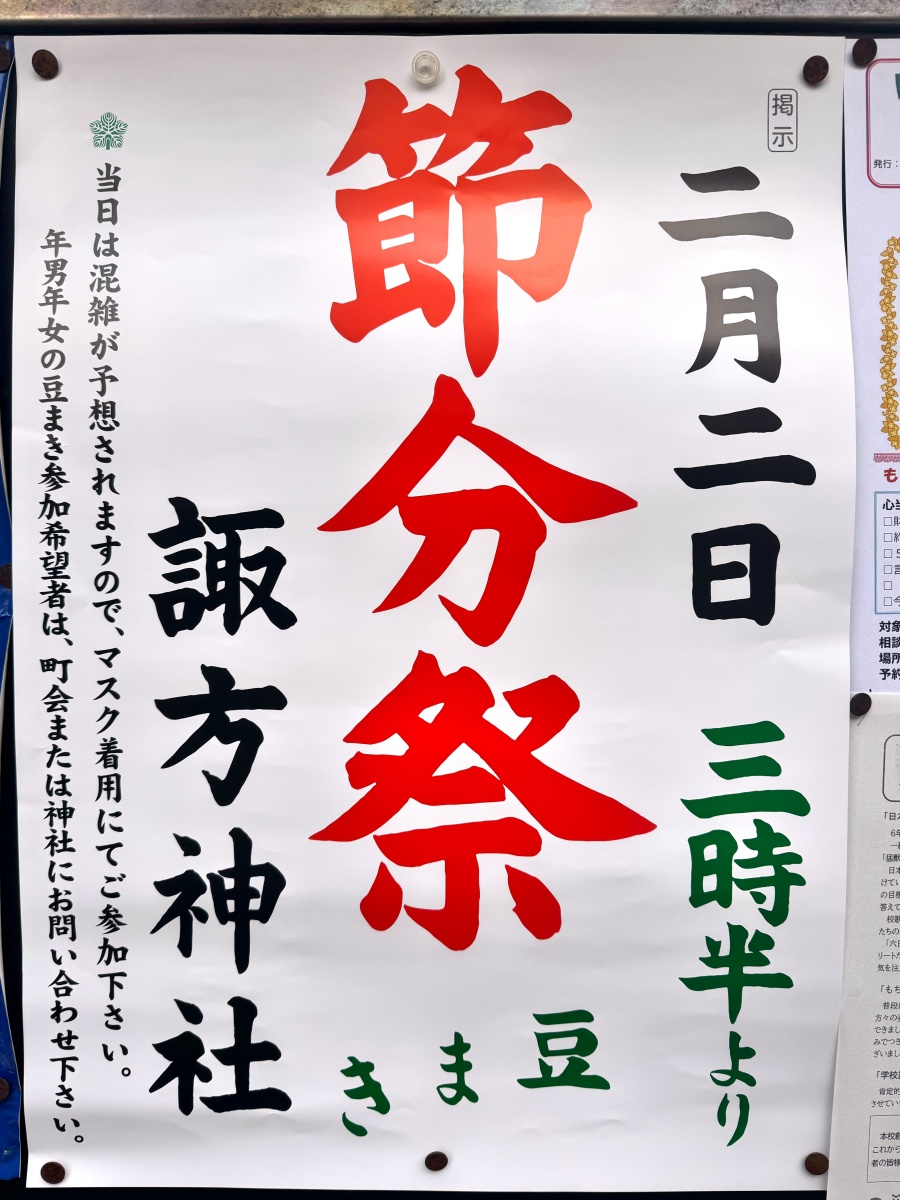 掲示
二月二日 三時半より
節分祭
豆まき
諏方神社
当日は混雑が予想されますので、マスク着用にてご参加下さい。
年男年女の豆まき参加希望者は、町会または神社にお問い合わせ下さい。
発行：
も
対象
相談
場所
予約